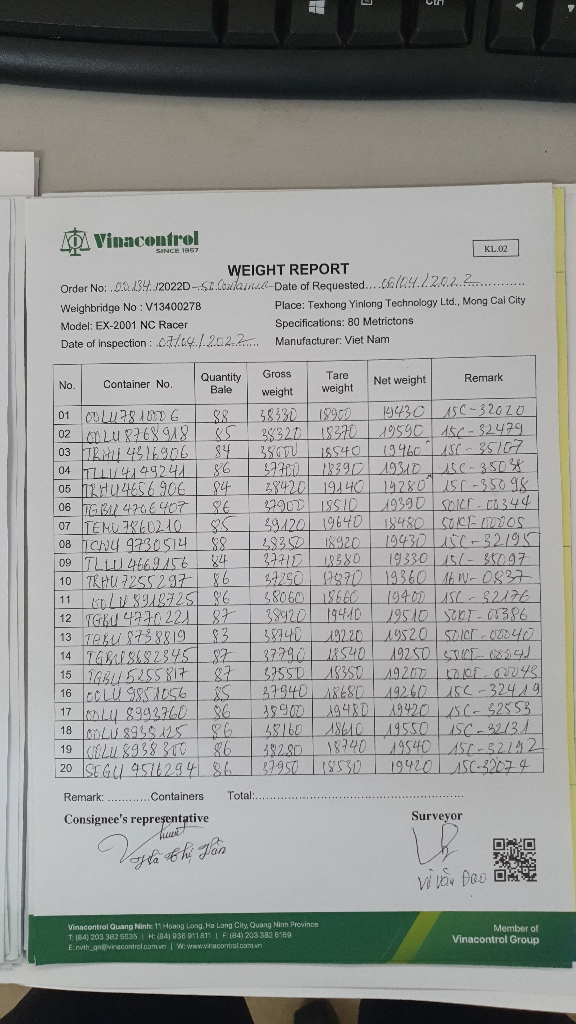 Vinacontrol
SINCE 1957
KL.02
WEIGHT REPORT
Order No: 00134/2022D- Date of Requested 06/04/2022
Weighbridge No : V13400278 Place: Texhong Yinlong Technology Ltd., Mong Cai City
Model: EX-2001 NC Racer Specifications: 80 Metrictons
Date of inspection : 07/04/2022 Manufacturer: Viet Nam
No. Container No. Quantity Bale Gross weight Tare weight Net weight Remark
01 OOLU7810006 88 38330 18900 19430 15C-32020
02 OOLU8768918 85 38320 18370 19590 15C-32479
03 TRHU4516906 84 18540 19460 15C-35107
04 TLLU4149241 86 37700 18390 19310 15C-35038
05 TRHU4656906 84 38420 19140 19280 15C-35098
06 TGBU4706407 86 37900 18510 19390 50KF-00344
07 TEMU7860210 85 39120 19640 18480 50KF-00005
08 9730514 88 38350 18920 19430 15C-32195
09 TLLU4669156 84 37710 18380 19330 15C-35097
10 TRHU7255297 86 37230 17870 19360 16N-0837
11 OOLU8918725 86 38060 18660 19400 15C-32176
12 TGBU4770221 87 38920 19410 19510 50KF-00386
13 TGBU8738819 83 38740 19220 19520 50KF-00040
14 TGBU8682345 87 37790 18540 19250
15 TGBU5255817 87 37550 18350 19200
16 OOLU9851056 85 37940 18680 19260 15C-32419
17 OOLU8993760 86 38900 19480 19420 15C-32553
18 OOLU8938125 86 38160 18610 19550 15C-32131
19 OOLU8938300 86 38280 18740 19540 15C-32192
20 SEGU9516294 86 37950 18530 19420 15C-32074
Remark: ............Containers Total:..........................................................
Consignee's representative Surveyor
Vi Văn Đạo
Vinacontrol Quang Ninh: 11 Hoang Long, Ha Long City, Quang Ninh Province
T: (84) 203 382 5535 | H: (84) 936 911 811 | F: (84) 203 382 6169
E: nvth_qn@vinacontrol.com.vn | W: www.vinacontrol.com.vn
Member of
Vinacontrol Group